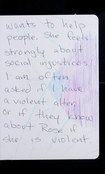 wants to help
people. She feels
strongly about
social injustices.
I am often
asked if I have
a violent alter,
or if they know
about Rose if
she is violent